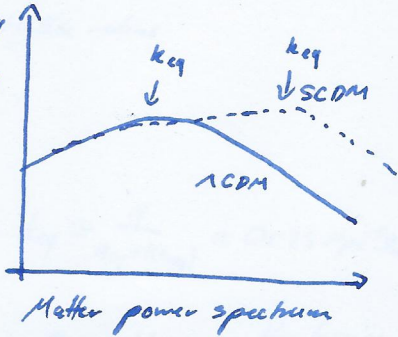 k_eq k_eq
SCDM
ΛCDM
Matter power spectrum